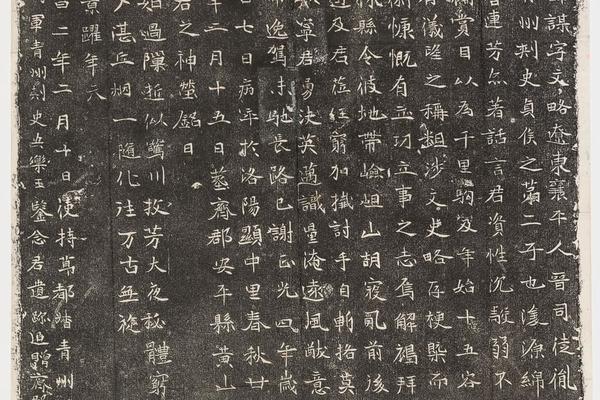 謀字文略遼東襄平人晉司徒胤
州刺史貞侯之第二子也浚源綿
連芳尒著話言君資性沉駿弱不
賞目以為千里駒矣年始十五容
有儀望之稱頗涉文史略存梗槩而
慷慨有立功立事之志焉解褐拜
縣令彼地帶嶮岨山胡寇亂前後
及君莅任窮加撫討手自斬格莫
寧君勇決英邁識量淹遠風猷意
逸駕未馳長路已謝正光四年歲
七日病卒於洛陽顯中里春秋廿
年二月十五日葬齊郡安平縣黃山
君之神塋銘曰
如過隟逝似驚川投芳大夜秘體窮
堪丘烟一隨化往万古無旋
景躍年六
昌二年二月十日使持莭都督青州
軍青州刺史安樂王鑒念君遺跡追贈齊